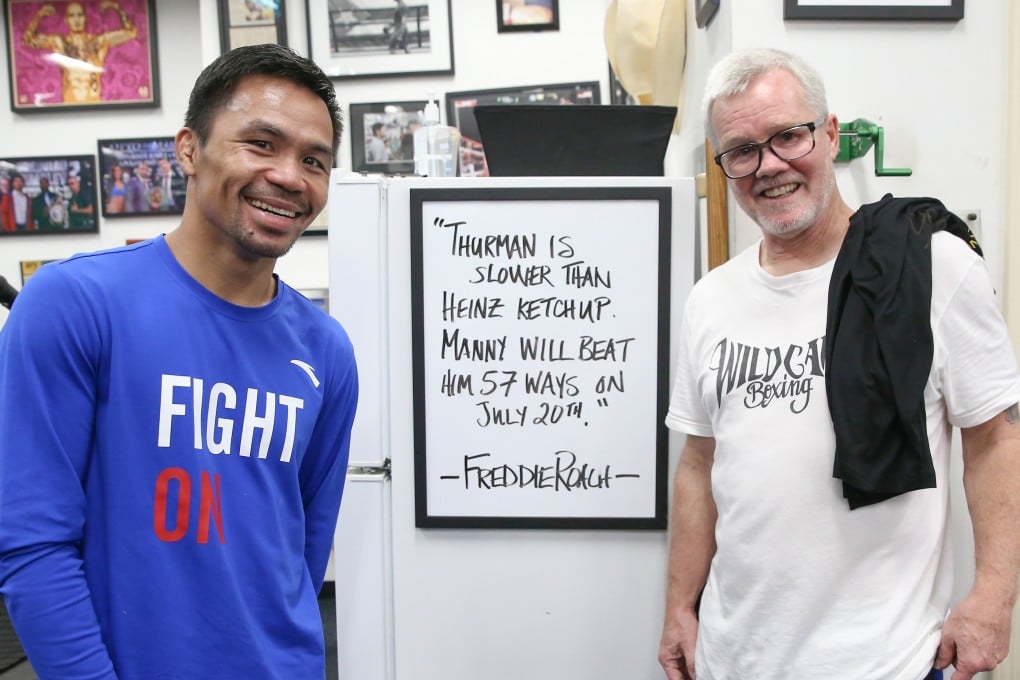 "THURMAN IS
SLOWER THAN
HEINZ KETCHUP.
MANNY WILL BEAT
HIM 57 WAYS ON
JULY 20TH."
—FREDDIE ROACH—
FIGHT
ON
Boxing